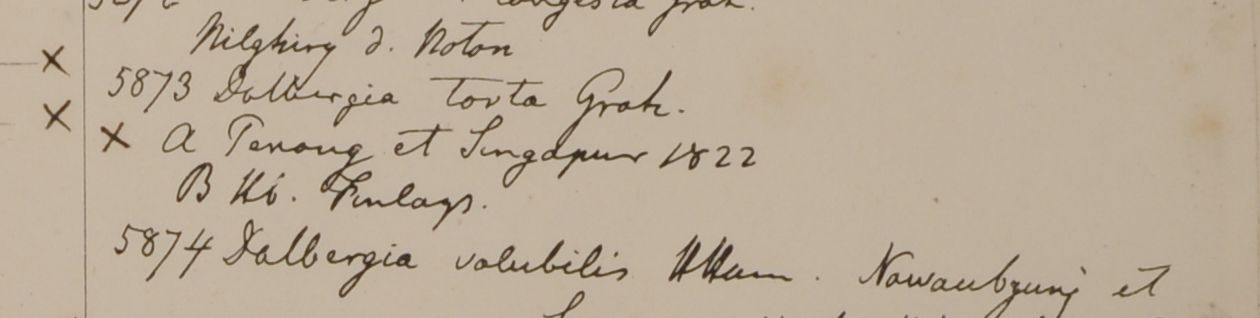 congesta Grah.
Nilghiry d. Noton
5873 Dalbergia torta Grah.
× A Penang et Singapur 1822
B Hb. Finlays.
5874 Dalbergia volubilis HHam. Nawaubgunj et